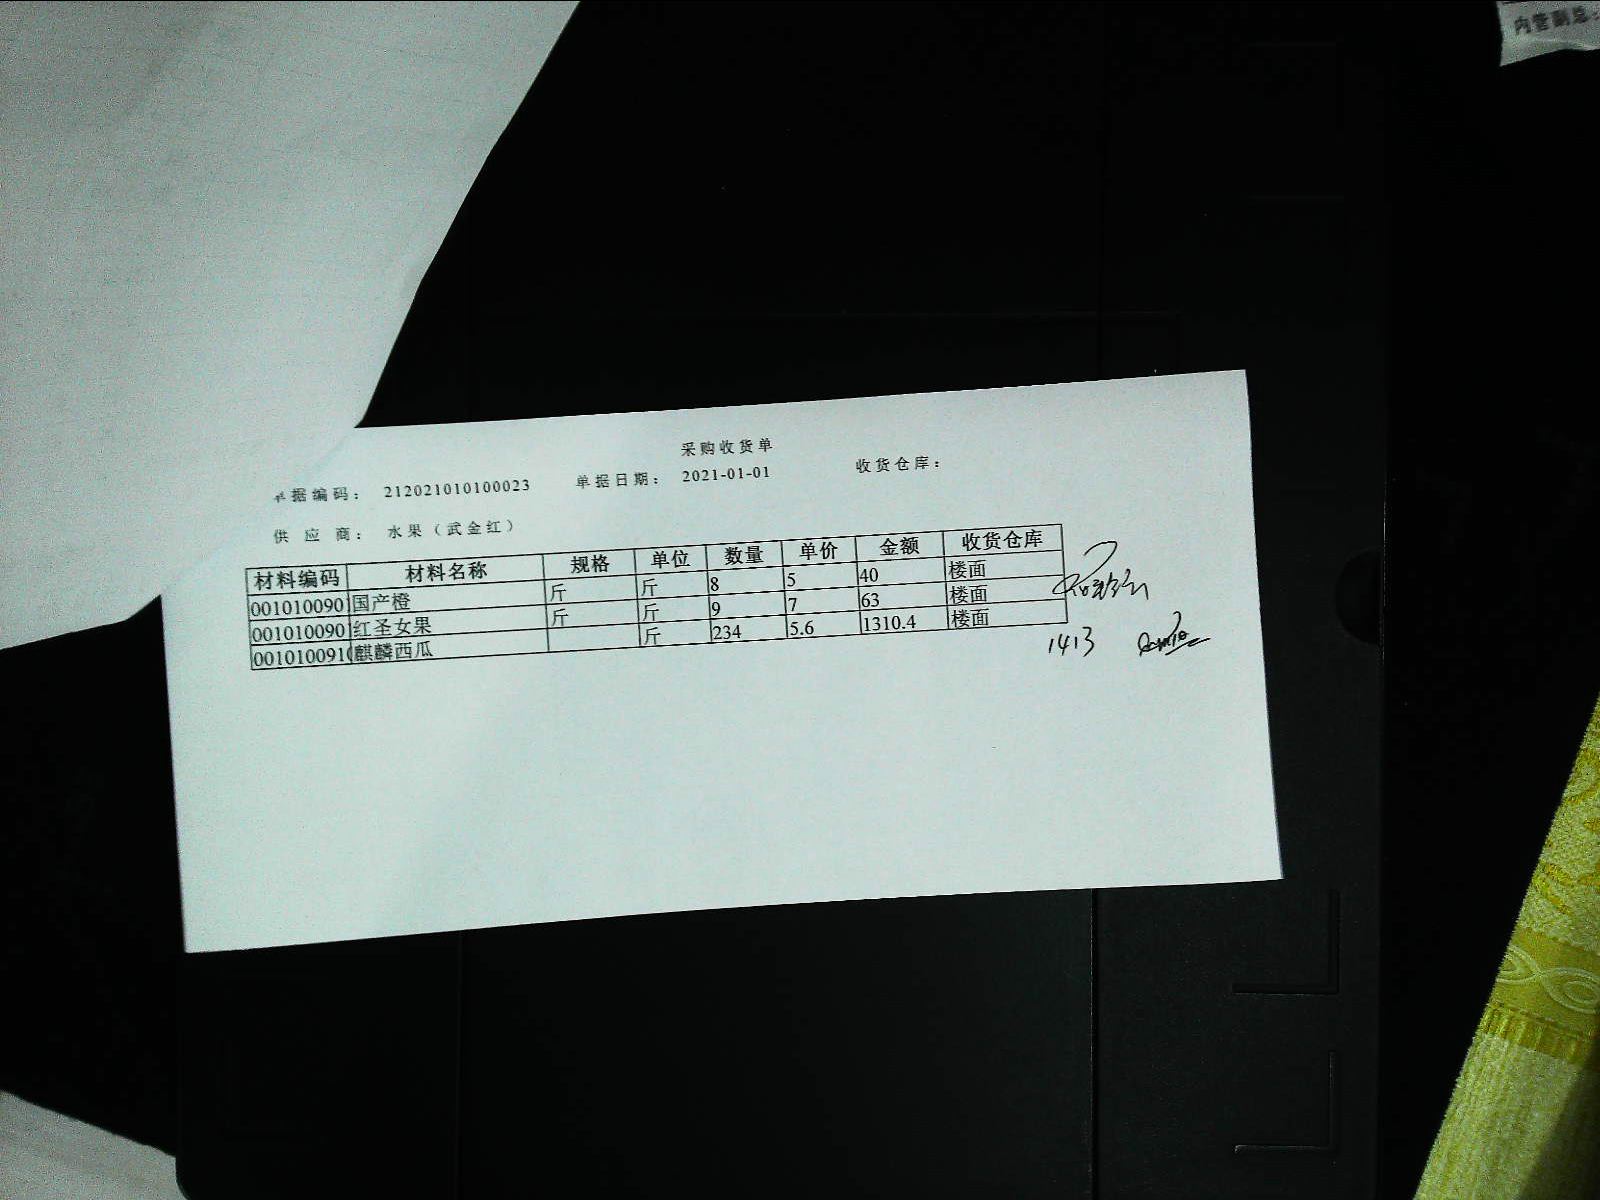 内营副总:
采购收货单
单据编码： 212021010100023 单据日期： 2021-01-01 收货仓库：
供 应 商： 水果（武金红）
材料编码 材料名称 规格 单位 数量 单价 金额 收货仓库
001010090 国产橙 斤 斤 8 5 40 楼面
001010090 红圣女果 斤 斤 9 7 63 楼面
001010091 麒麟西瓜 斤 234 5.6 1310.4 楼面
1413